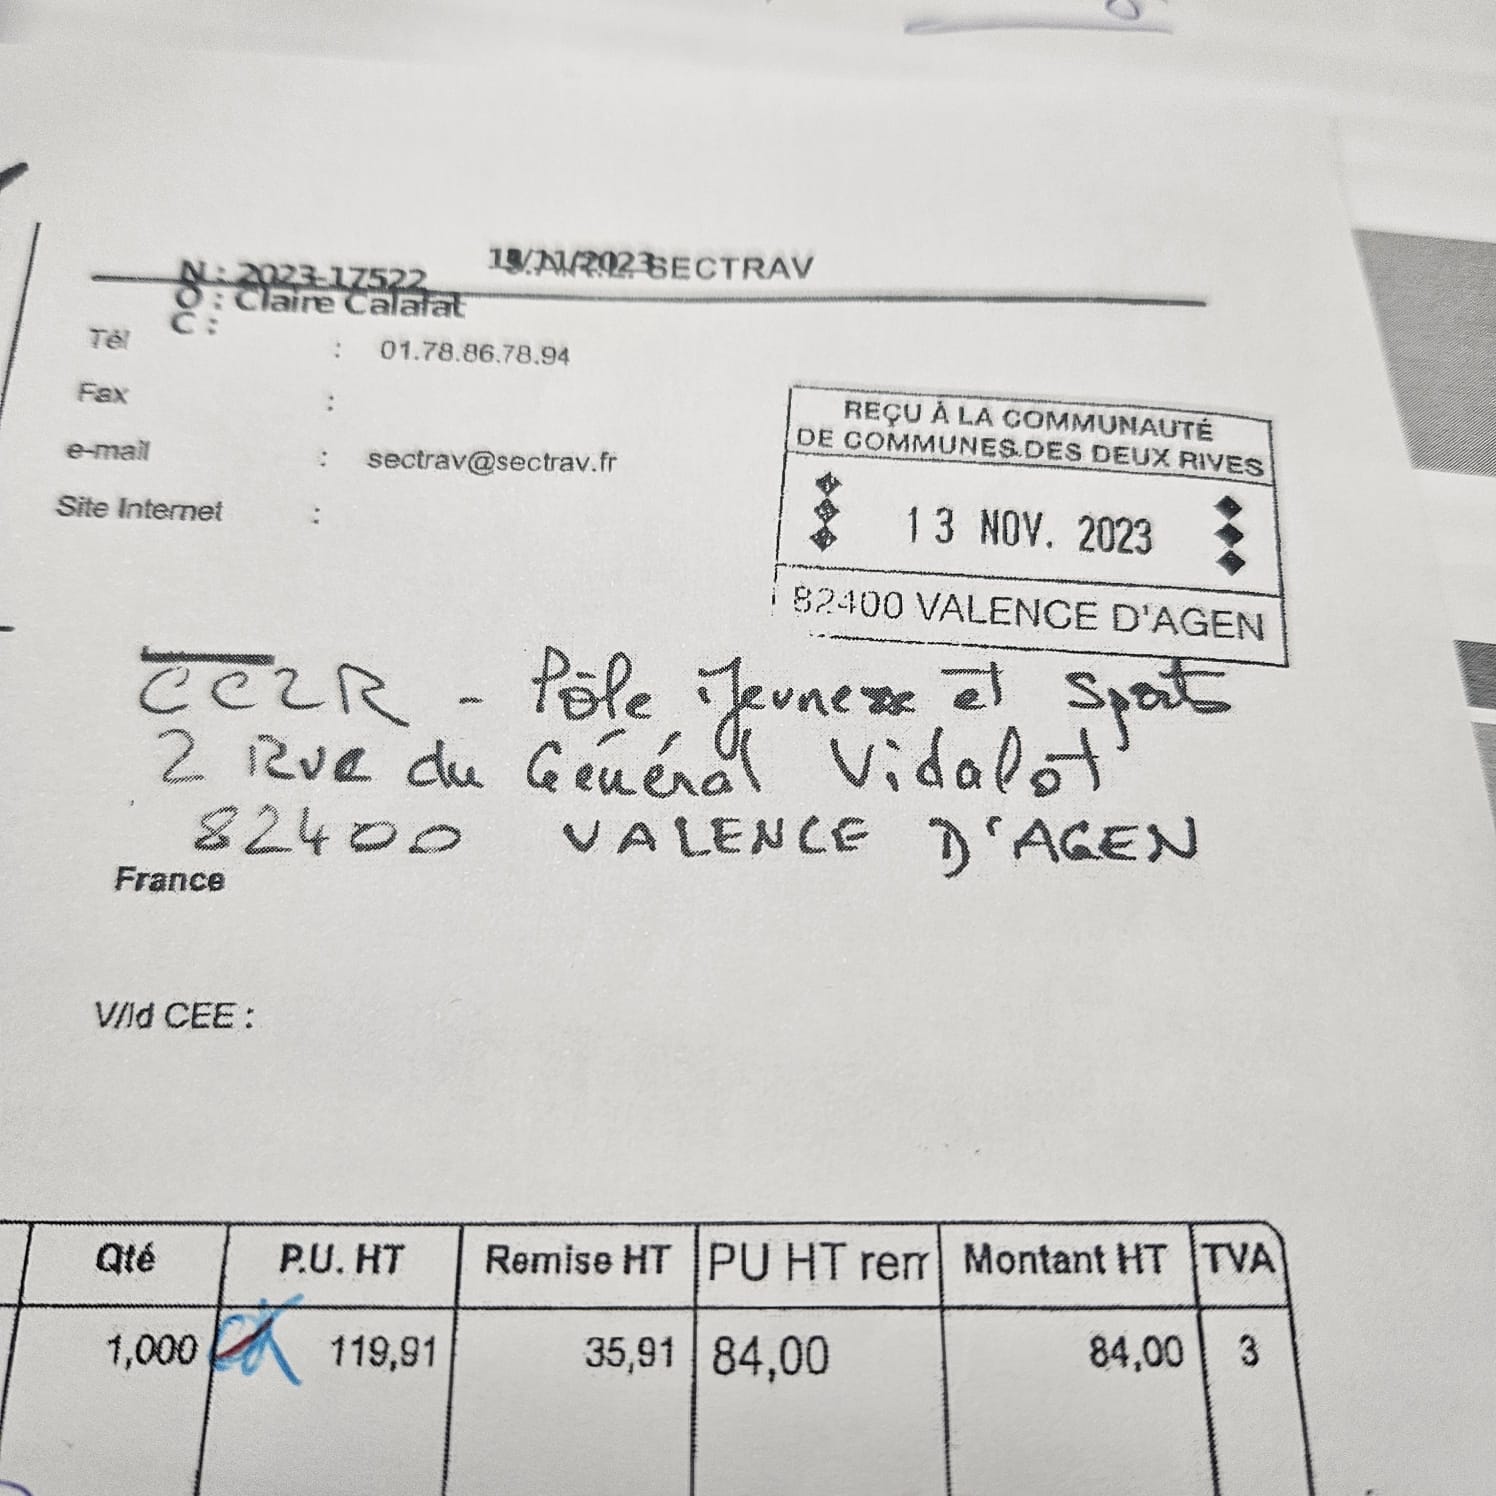 SECTRAV
N : 2023-17522
O : Claire Calafat
C :
Tél : 01.78.86.78.94
Fax :
e-mail : sectrav@sectrav.fr
Site Internet :
REÇU À LA COMMUNAUTÉ
DE COMMUNES DES DEUX RIVES
13 NOV. 2023
82400 VALENCE D'AGEN
CC2R - Pôle Jeunesse et Sports
2 Rue du Général Vidalot
82400 VALENCE D'AGEN
France
V/Id CEE :
Qté P.U. HT Remise HT PU HT rem Montant HT TVA
1,000 119,91 35,91 84,00 84,00 3